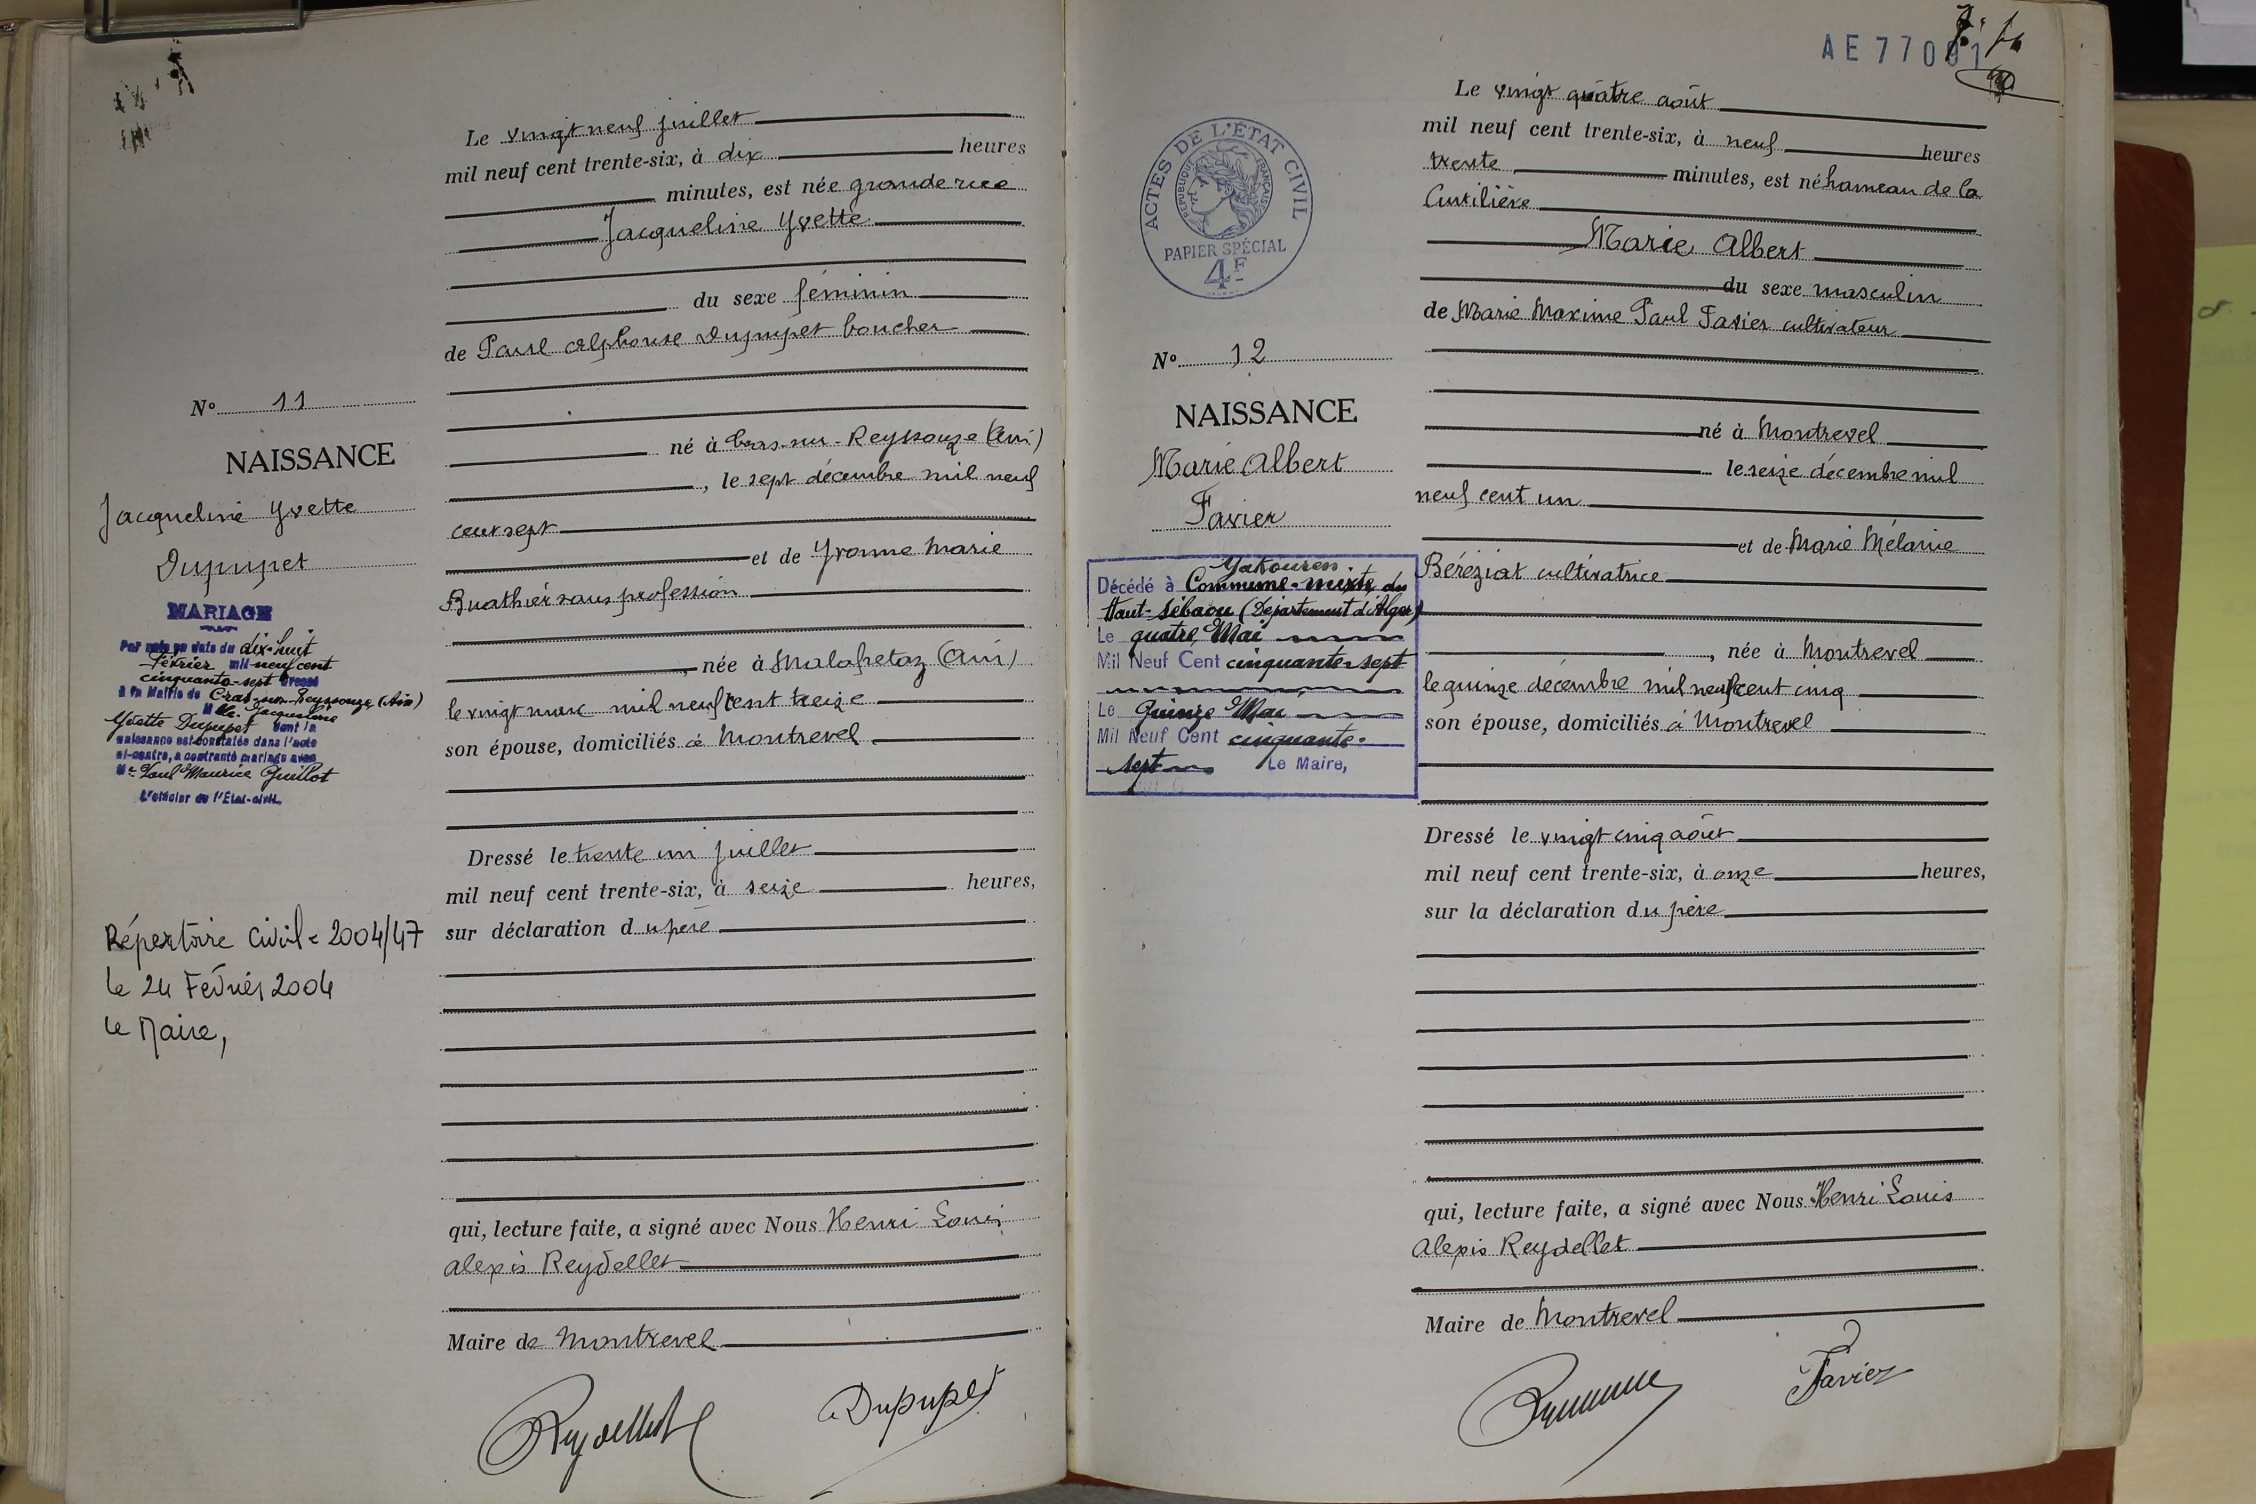 Le vingt neuf juillet
mil neuf cent trente-six, à dix heures
minutes, est née grande rue
Jacqueline Yvette
du sexe féminin
de Paul Alphonse Dupupet boucher
né à Cras-sur-Reyssouze (Ain)
, le sept décembre mil neuf
cent sept
et de Yvonne Marie
Buathier sans profession
, née à Malafretaz (Ain)
le vingt mars mil neuf cent treize
son épouse, domiciliés à Montrevel
Dressé le trente un juillet
mil neuf cent trente-six, à seize heures,
sur déclaration du père
qui, lecture faite, a signé avec Nous Henri Louis
Alexis Reydellet
Maire de Montrevel
Reydellet Dupupet
No 11
NAISSANCE
Jacqueline Yvette
Dupupet
MARIAGE
Par acte en date du dix-huit
Février mil neuf cent
cinquante-sept dressé
à la Mairie de Cras-sur-Reyssouze (Ain)
Mlle Jacqueline
Yvette Dupupet dont la
naissance est constatée dans l'acte
ci-contre, a contracté mariage avec
Mr Paul Maurice Guillot
L'officier de l'État-civil.
Répertoire Civil = 2004/47
le 24 Février 2004
Le Maire,
ACTES DE L'ÉTAT CIVIL
RÉPUBLIQUE FRANÇAISE
PAPIER SPÉCIAL
4F
No 12
NAISSANCE
Marie Albert
Favier
Yakouren
Décédé à Commune-mixte du
Haut-Sébaou (Département d'Alger)
Le quatre Mai
Mil Neuf Cent cinquante-sept
Le Quinze Mai
Mil Neuf Cent cinquante-
sept Le Maire,
Le vingt quatre août
mil neuf cent trente-six, à neuf heures
trente minutes, est né hameau de la
Marie Albert
du sexe masculin
de Marie Maxime Paul Favier cultivateur
né à Montrevel
le seize décembre mil
neuf cent un
et de Marie Mélanie
Béréziat cultivatrice
, née à Montrevel
le quinze décembre mil neuf cent cinq
son épouse, domiciliés à Montrevel
Dressé le vingt cinq août
mil neuf cent trente-six, à onze heures,
sur la déclaration du père
qui, lecture faite, a signé avec Nous Henri Louis
Alexis Reydellet
Maire de Montrevel
Favier